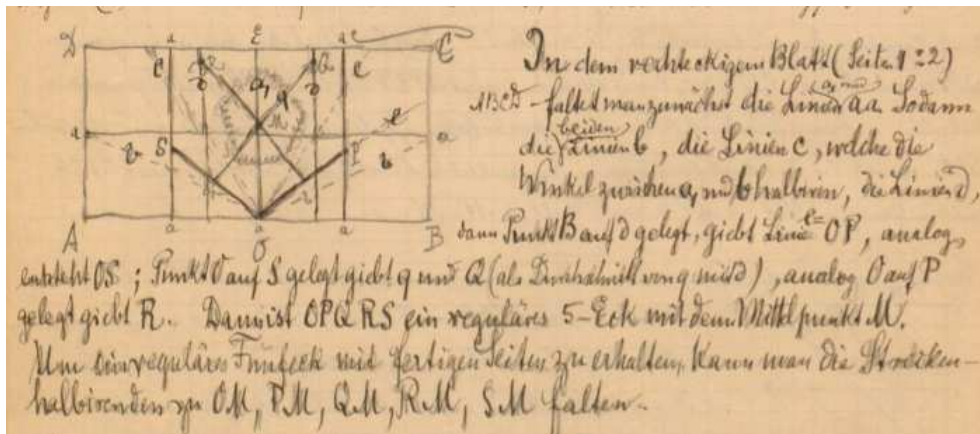 D a E a C
c R d a₁ q Q d c
M
a S b b P a
e
A a O a B
In dem rechteckigem Blatt (Seiten 1:2)
ABCD faltet man zunächst die Linien a₁ und aa. Sodann
die beiden Linien b, die Linien c, welche die
Winkel zwischen a₁ und b halbiren, die Linien d,
dann Punkt B auf d gelegt, giebt Linie e = OP, analog
entsteht OS; Punkt O auf S gelegt giebt q und Q (als Durchschnitt von q mit d), analog O auf P
gelegt giebt R. Dann ist OPQRS ein reguläres 5-Eck mit dem Mittelpunkt M.
Um ein reguläres Fünfeck mit fertigen Seiten zu erhalten, kann man die Strecken-
halbirenden zu OM, PM, QM, RM, SM falten.